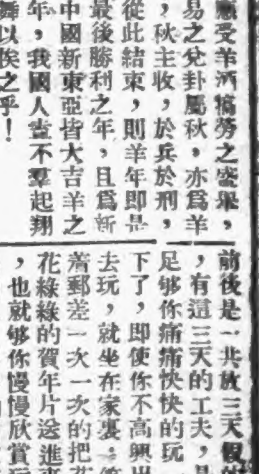 應受羊酒犒勞之盛舉，
易之兌卦屬秋，亦爲羊
，秋主收，於兵於刑，
從此結束，則羊年卽是
最後勝利之年，且爲新
中國新東亞皆大吉羊之
年，我國人豈不羣起翔
舞以俟之乎！
前後是一共放三天假
，有這三天的工夫，
足够你痛痛快快的玩
下了，卽使你不高興出
去玩，就坐在家裏，等
着郵差一次一次的把花
花綠綠的賀年片送進
，也就够你慢慢欣賞